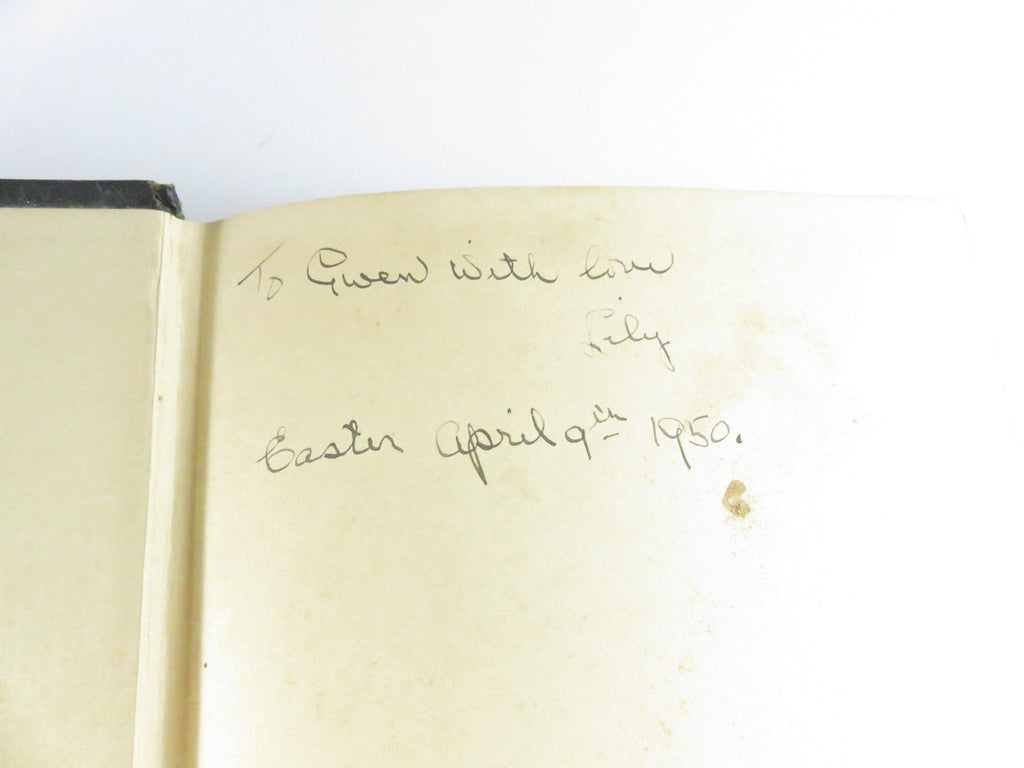 To Gwen With love
Lily
Easter April 9th 1950.